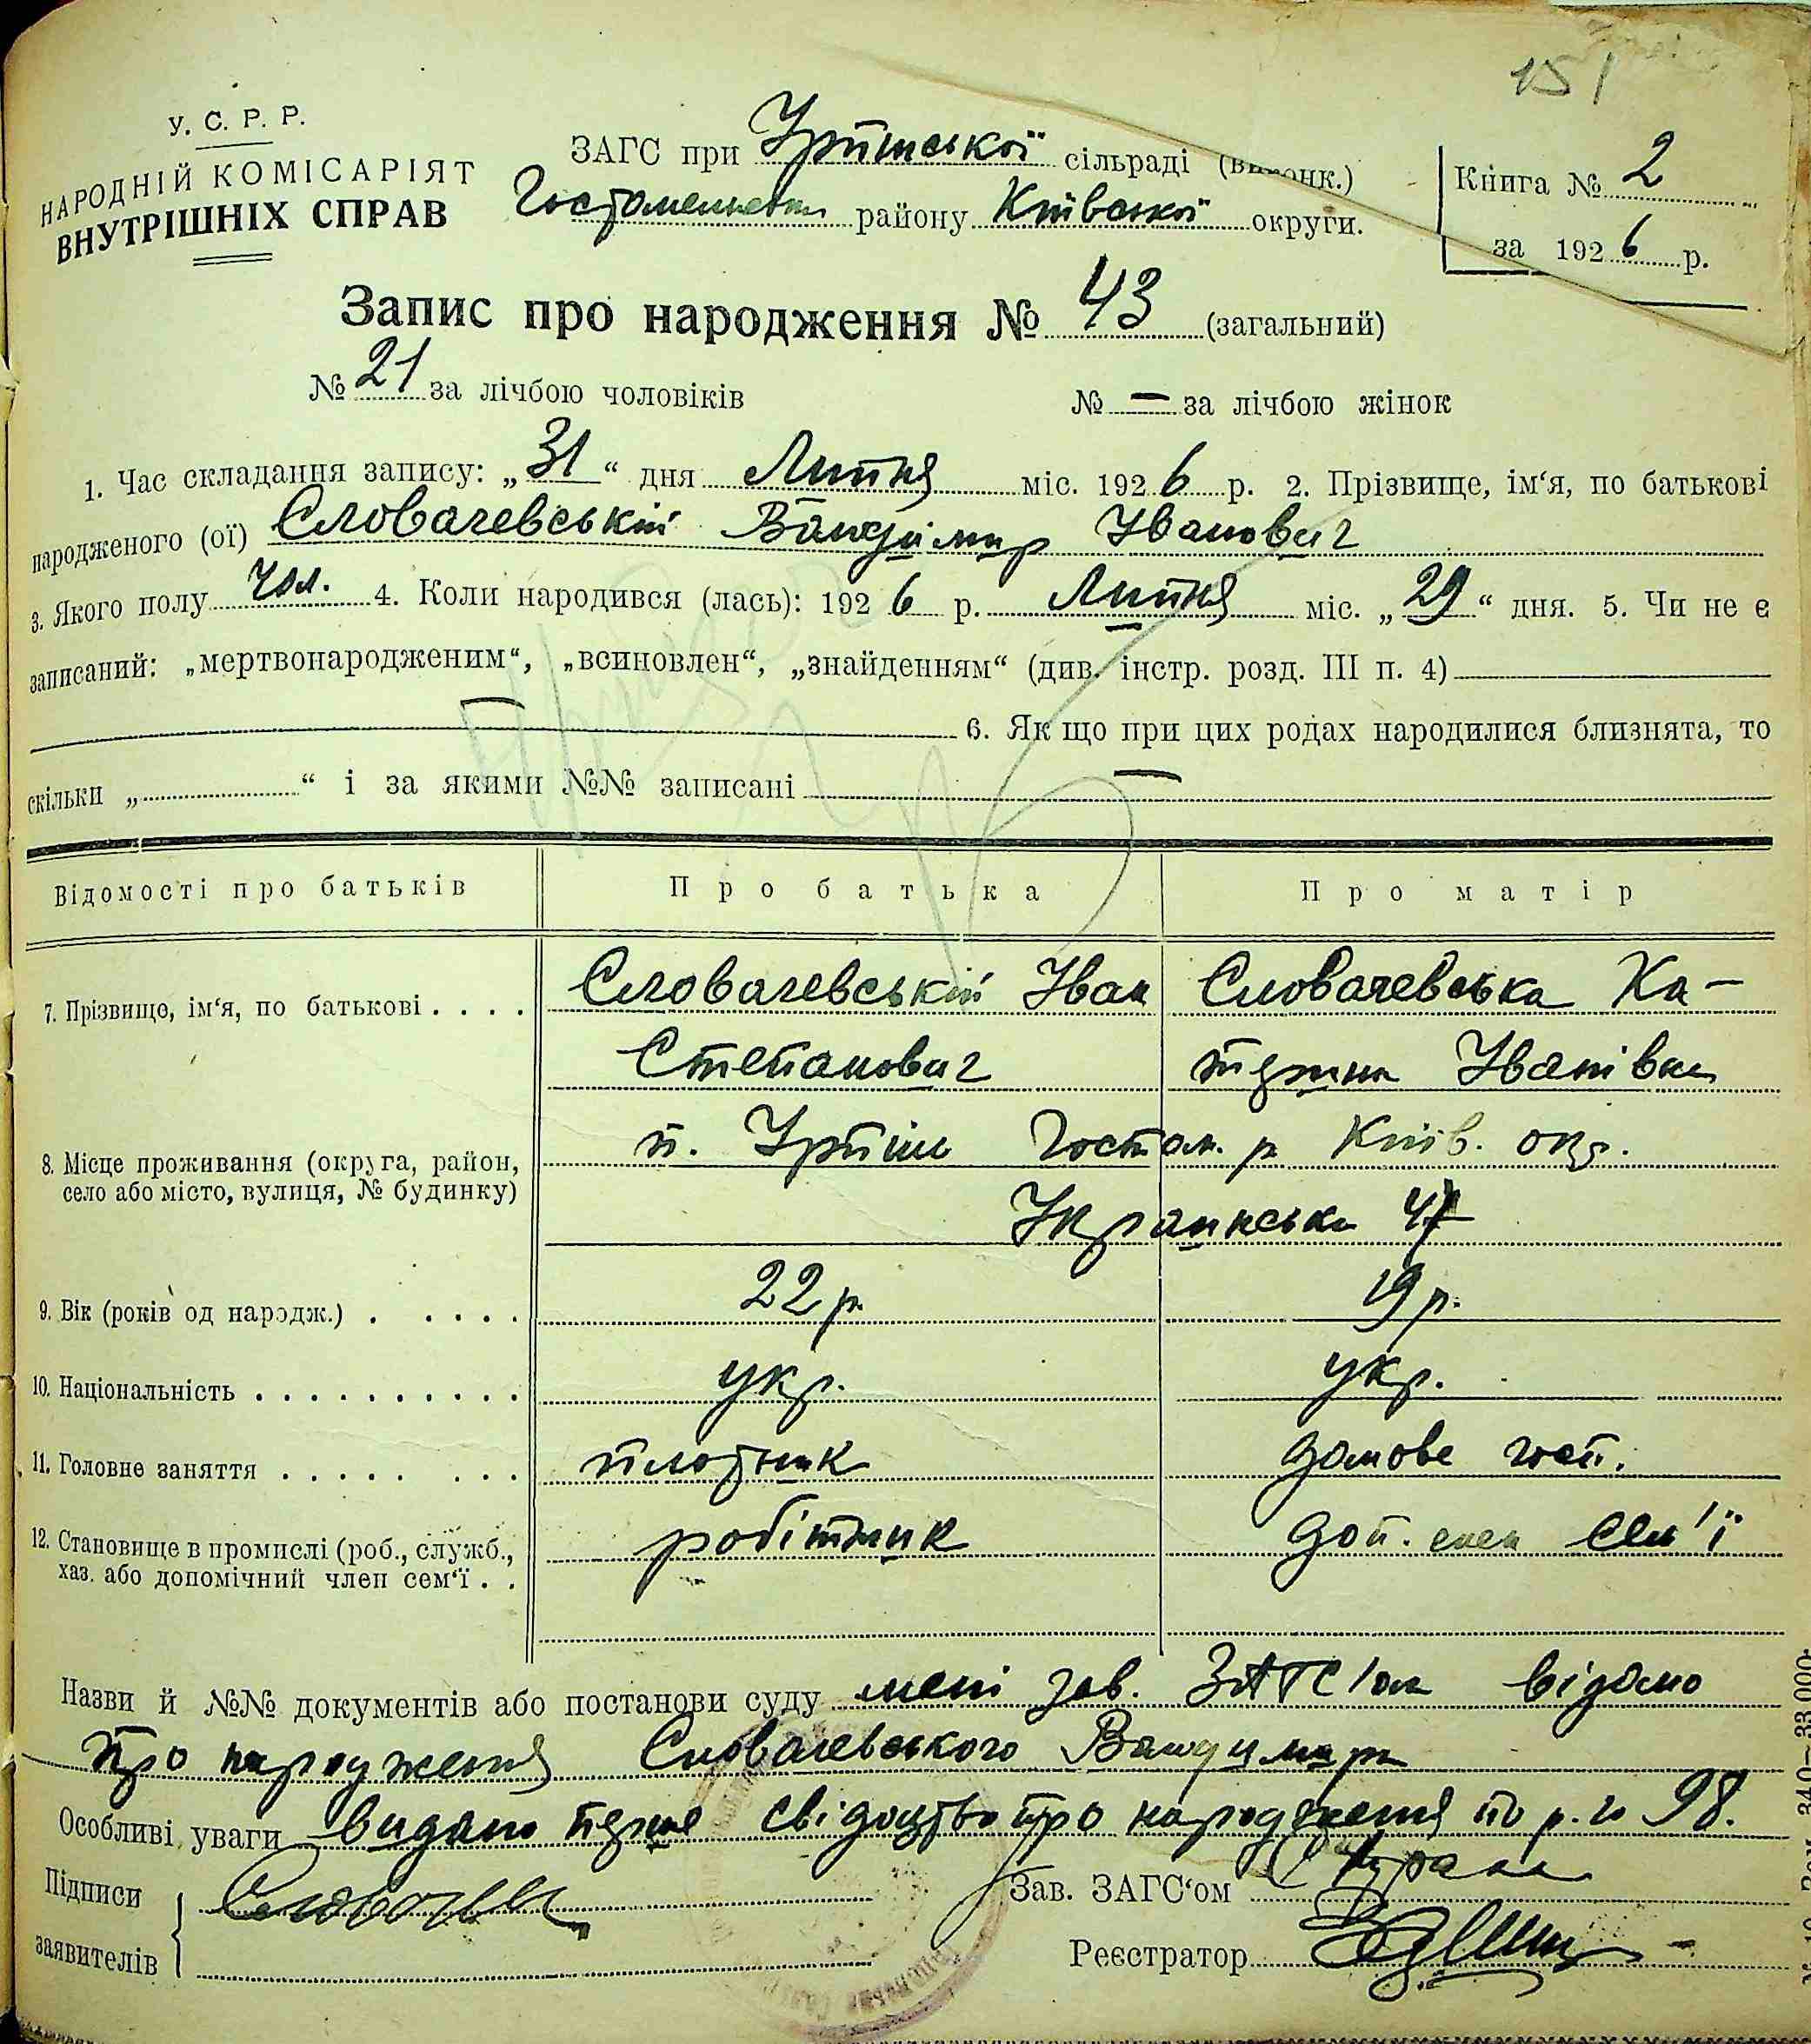 151
У. С. Р. Р.
НАРОДНІЙ КОМІСАРІЯТ
ВНУТРІШНІХ СПРАВ
ЗАГС при Ірпінської сільраді (виконк.)
Гостомельськ району Київської округи.
Книга № 2
за 1926 р.
Запис про народження № 43 (загальний)
№ 21 за лічбою чоловіків № — за лічбою жінок
1. Час складання запису: „31“ дня Липня міс. 1926 р. 2. Прізвище, ім‘я, по батькові
народженого (ої) Словачевській Владимир Іванович
3. Якого полу чол. 4. Коли народився (лась): 1926 р. Липня міс. „29“ дня. 5. Чи не є
записаний: „мертвонародженим“, „всиновлен“, „знайденням“ (див. інстр. розд. III п. 4)
— 6. Як що при цих родах народилися близнята, то
скільки „ “ і за якими №№ записані —
Відомості про батьків Про батька Про матір
7. Прізвище, ім‘я, по батькові . . . . Словачевській Іван Словачевська Ка-
Степанович терина Іванівна
8. Місце проживання (округа, район, п. Ірпінь Гостом. р Київ. окр.
село або місто, вулиця, № будинку)
Українська 47
9. Вік (років од народж.) . . . . . 22 р 19 р.
10. Національність . . . . . . . . . . укр. укр.
11. Головне заняття . . . . . . . . плотник домове госп.
12. Становище в промислі (роб., служб., робітник доп. член сем'ї
хаз. або допомічний член сем‘ї . .
Назви й №№ документів або постанови суду мені зав. ЗАГС'ом відомо
про народження Словачевського Владимира
Особливі уваги видано перше свідоцтво про народження по р. № 98.
Підписи
заявителів
Зав. ЗАГС‘ом
Реєстратор